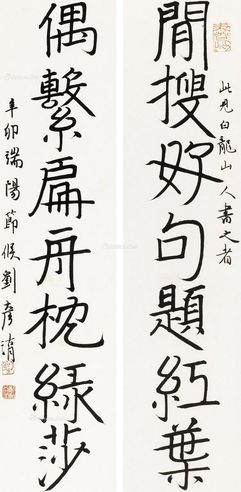 閒搜好句題紅葉
此見白龍山人書之者
偶繫扁舟枕綠莎
辛卯端陽節後劉彥涓